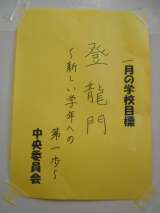 一月の学校目標
登龍門
～新しい学年への
第一歩～
中央委員会